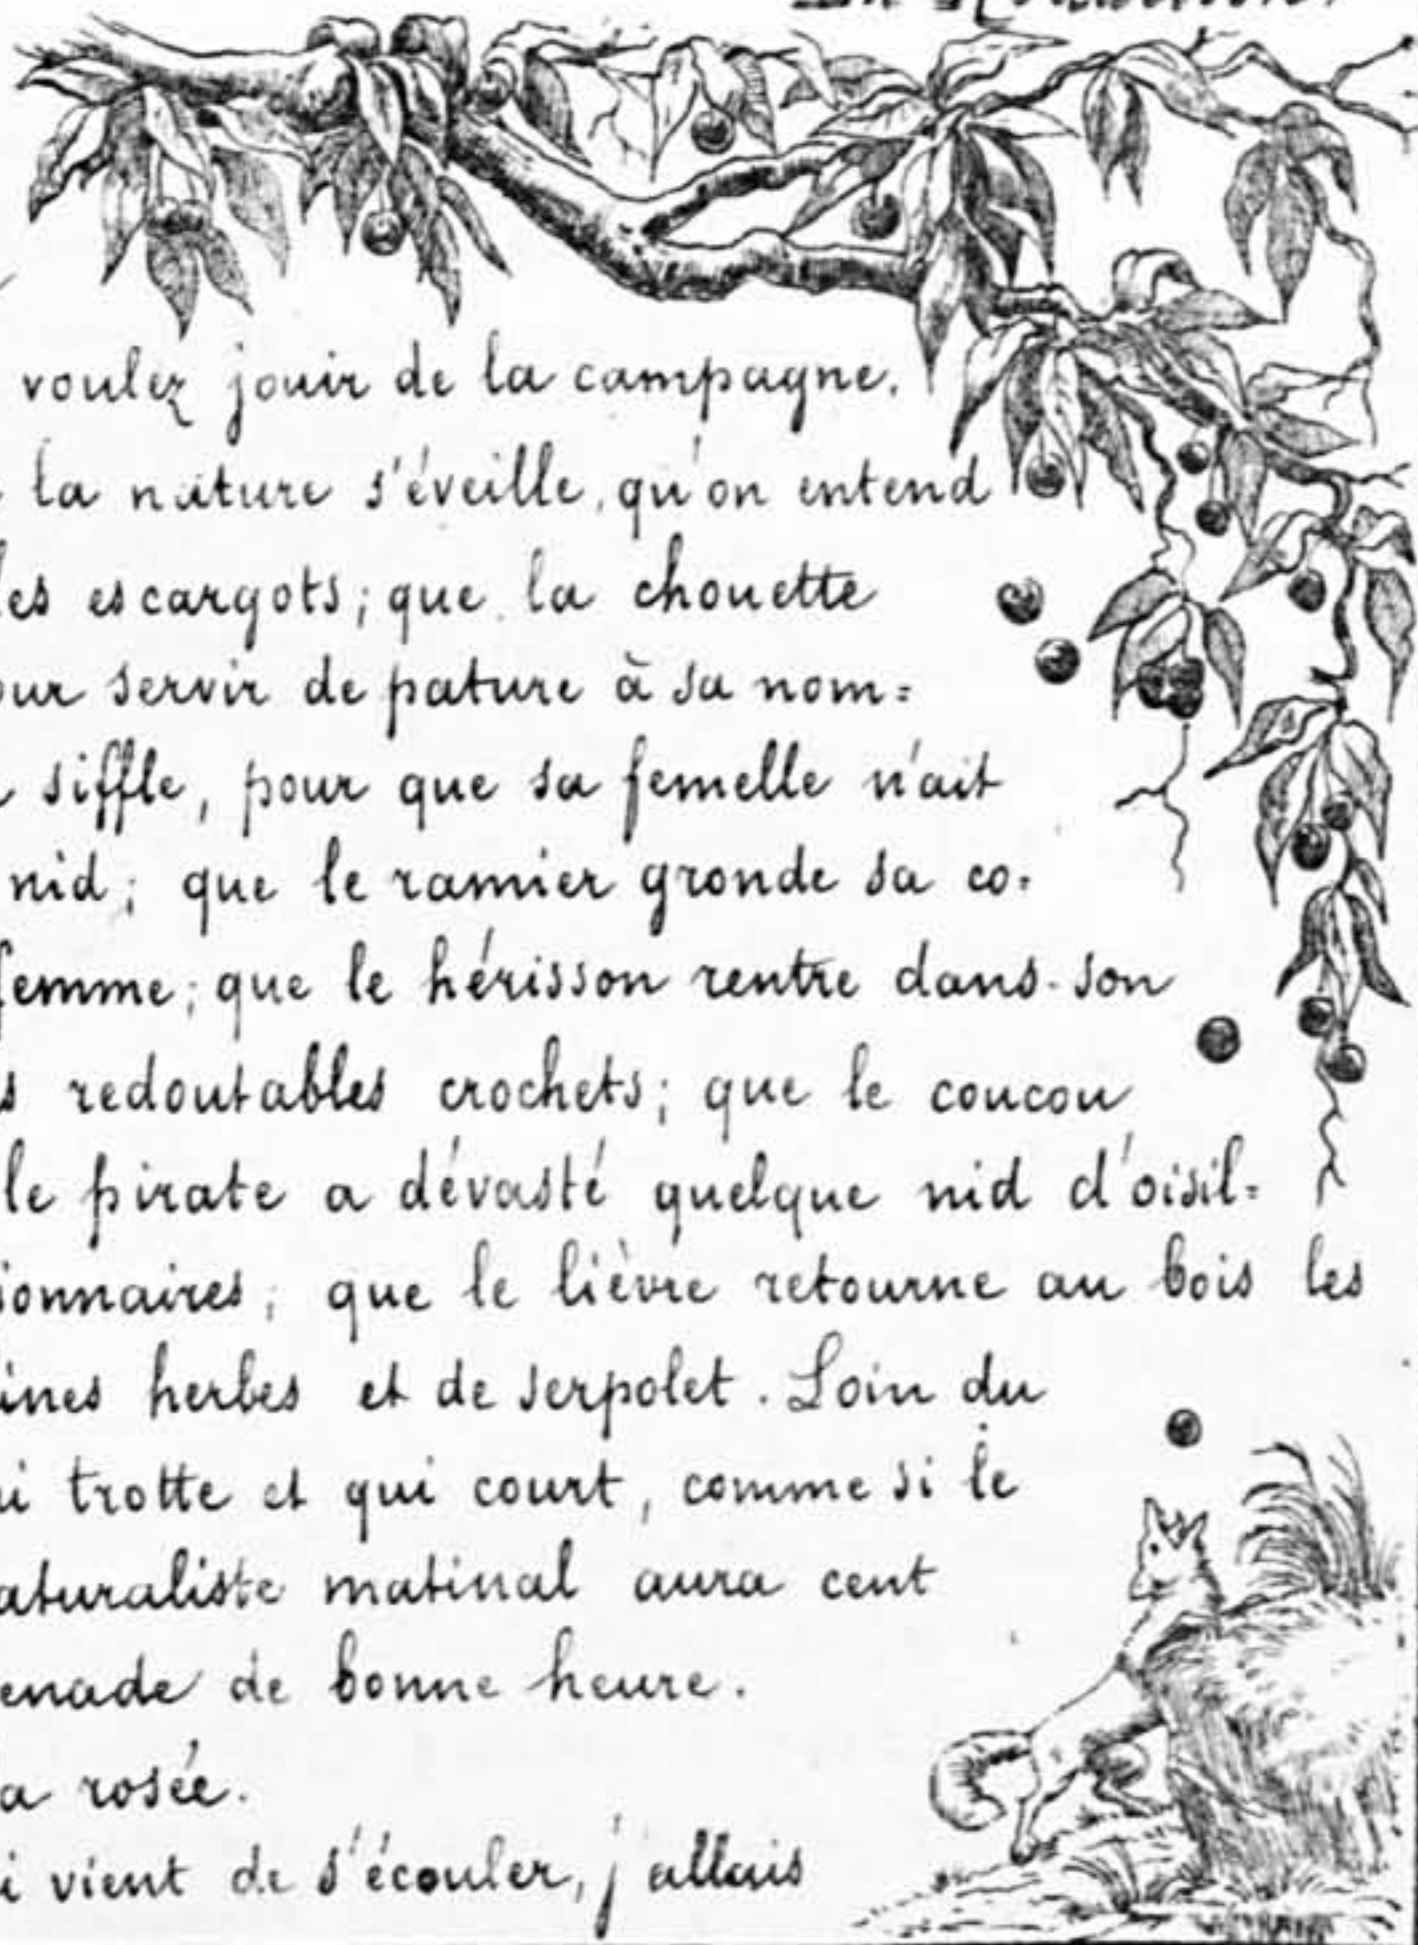 voulez jouir de la campagne.
la nature s'éveille, qu'on entend
les escargots; que la chouette
servir de pature à sa nom=
siffle, pour que sa femelle n'ait
nid; que le ramier gronde sa co=
femme; que le hérisson rentre dans son
redoutables crochets; que le coucou
le pirate a dévasté quelque nid d'oisil=
que le lièvre retourne au bois les
herbes et de serpolet. Loin du
trotte et qui court, comme si le
matinal aura cent
de bonne heure.
rosée.
vient de s'écouler, j'allais